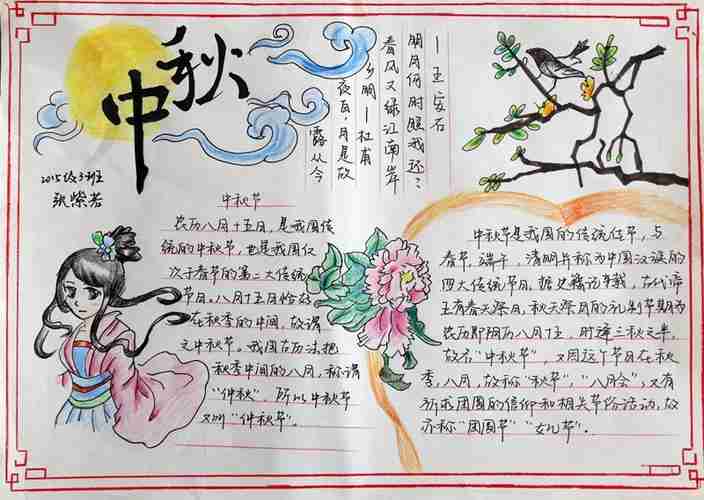 中秋
2015级3班
张紫若
露从今
夜白，月是故
乡明—杜甫
春风又绿江南岸
明月何时照我还？
—王安石
中秋节
农历八月十五日，是我国传
统的中秋节，也是我国仅
次于春节的第二大传统
节日。八月十五恰好
在秋季的中间，故谓
之中秋节。我国农历法把
秋季中间的八月，称谓
“仲秋”，所以中秋节
又叫“仲秋节”。
中秋节是我国的传统佳节，与
春节，端午，清明并称为中国汉族的
四大传统节日。据史籍记载，古代帝
王有春天祭日，秋天祭月的礼制节期为
农历即阴历八月十五，时逢三秋之半，
故名“中秋节”，又因这个节日在秋
季，八月，故称“秋节”，“八月会”；又有
祈求团圆的信仰和相关节俗活动，故
亦称“团圆节”“女儿节”.